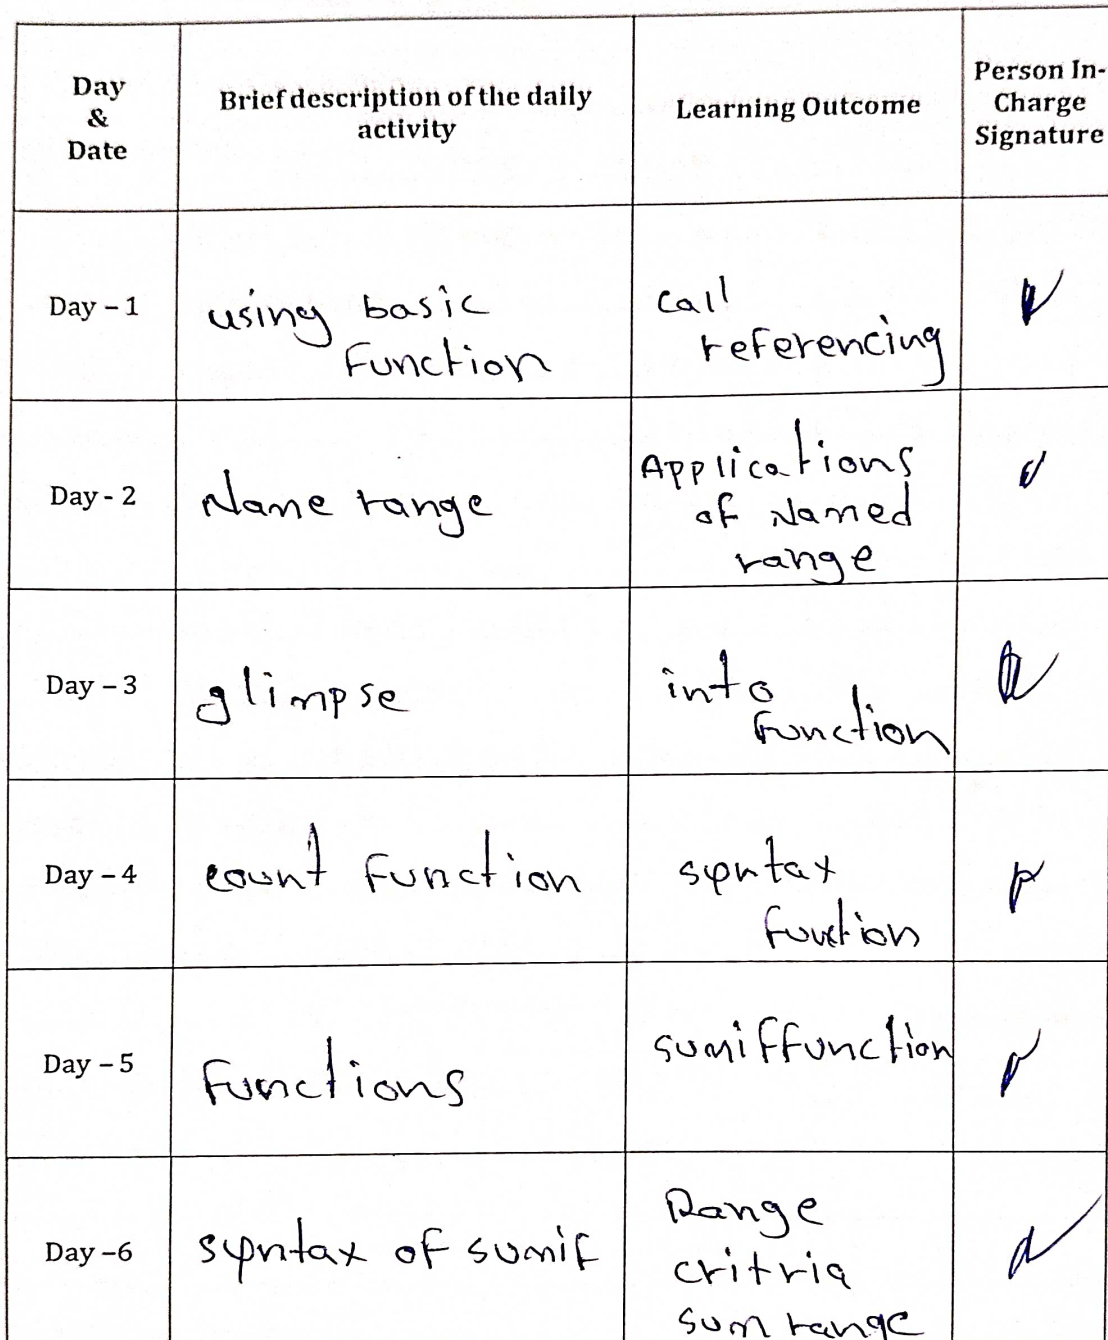 Day
&
Date
Brief description of the daily
activity
Learning Outcome
Person In-
Charge
Signature
Day - 1
using basic
function
call
referencing
Day - 2
Name range
Applications
of Named
range
Day - 3
glimpse
into
function
Day - 4
count function
syntax
function
Day - 5
functions
sumiffunction
Day -6
syntax of sumif
Range
critria
sum range